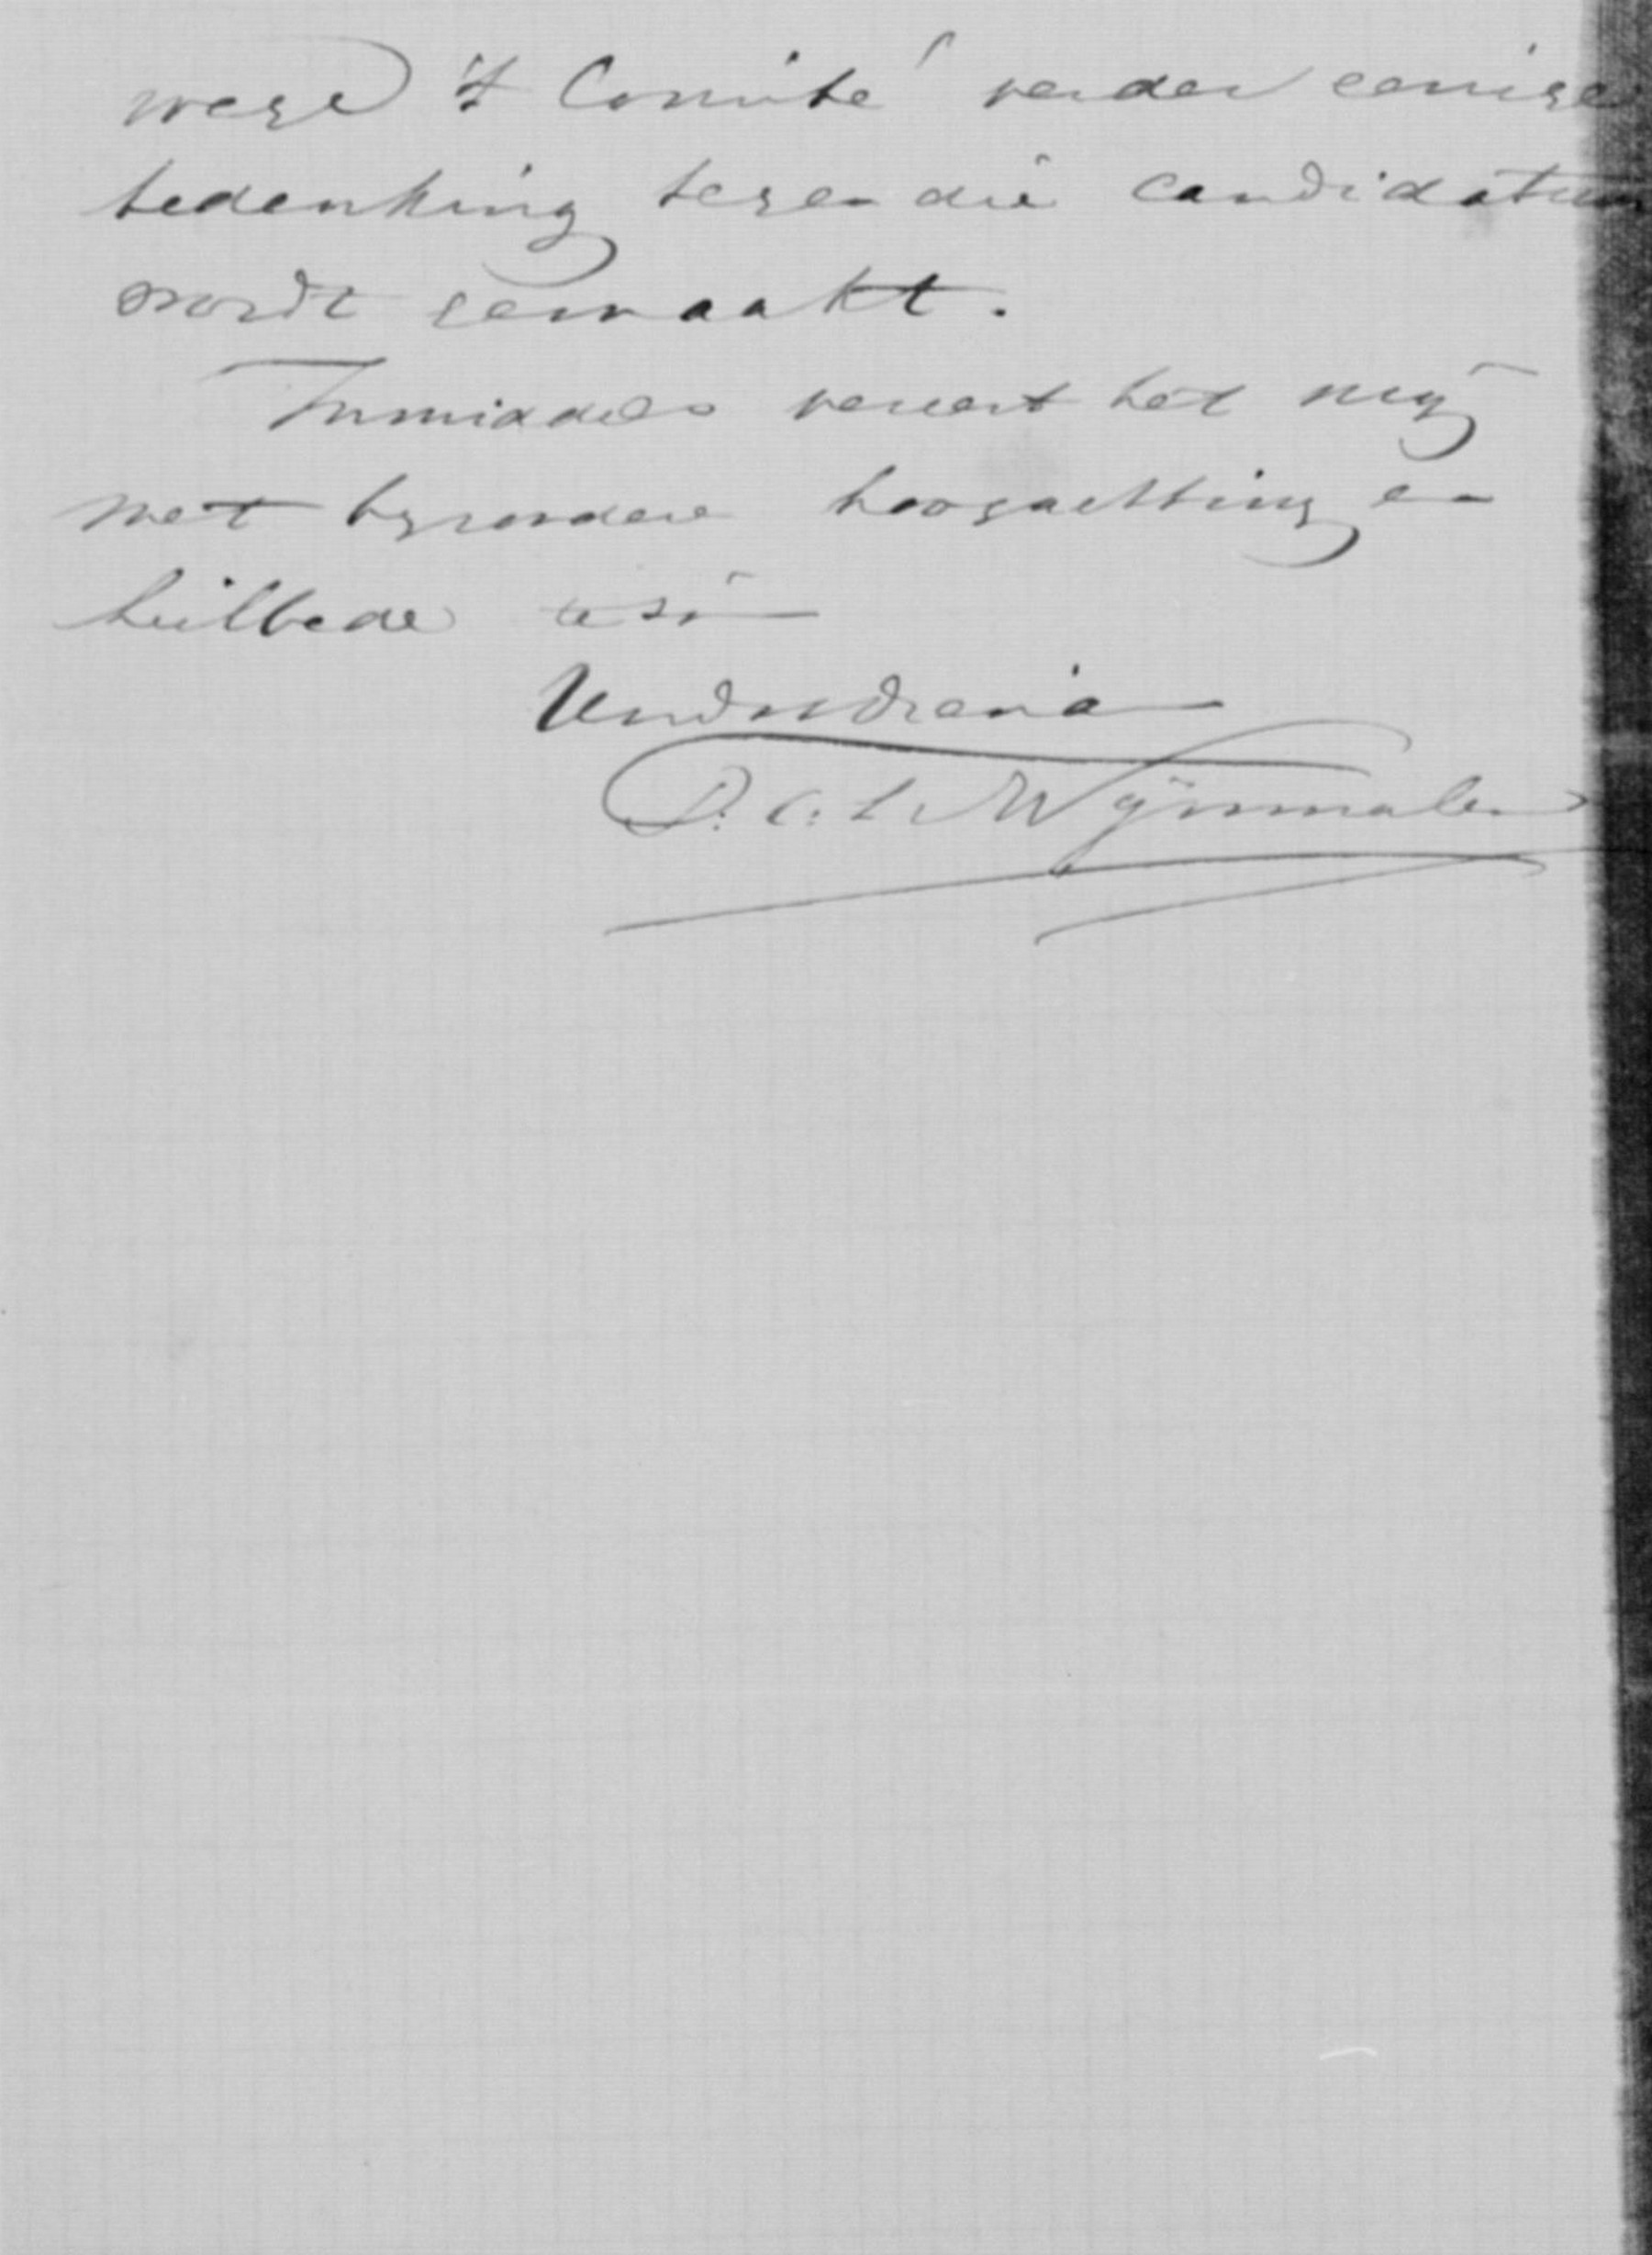 wege 't Comité verder eenige
bedenking tegen die candidatuur
wordt gemaakt.
Inmiddels vereert het mij
met byzondere hoogachting en
heilbede te zijn
Uw dw dienaar
T. C. L. Wijnmalen